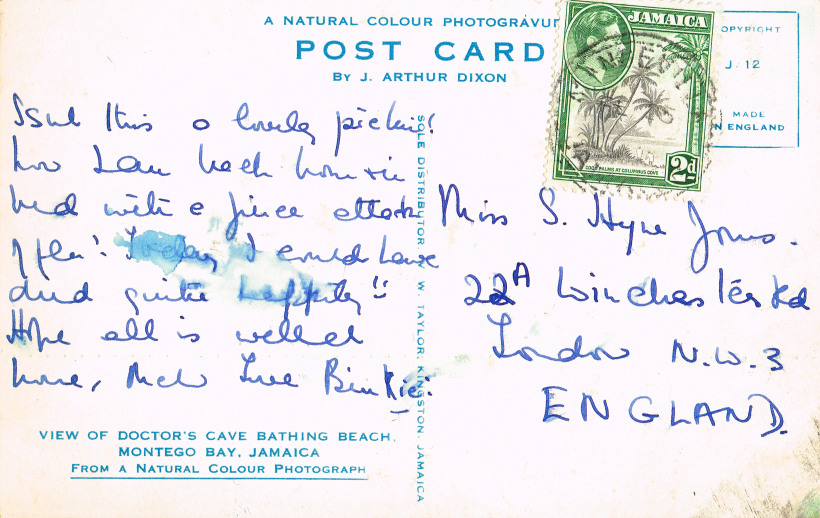 A NATURAL COLOUR PHOTOGRAVUR
POST CARD
BY J. ARTHUR DIXON
OPYRIGHT
J. 12
MADE
N ENGLAND
JAMAICA
COCO PALMS AT COLUMBUS COVE
2d
Isnt this a lovely picture!
now I am back home in
bed with a fierce attack
of flu! Today I could have
died quite happily!!
Hope all is well at
home, Much Love Binkie.
SOLE DISTRIBUTOR W. TAYLOR, KINGSTON, JAMAICA
Miss S. Hyne Jones.
22A Winchester Rd
London N.W.3
ENGLAND.
VIEW OF DOCTOR'S CAVE BATHING BEACH,
MONTEGO BAY, JAMAICA
FROM A NATURAL COLOUR PHOTOGRAPH